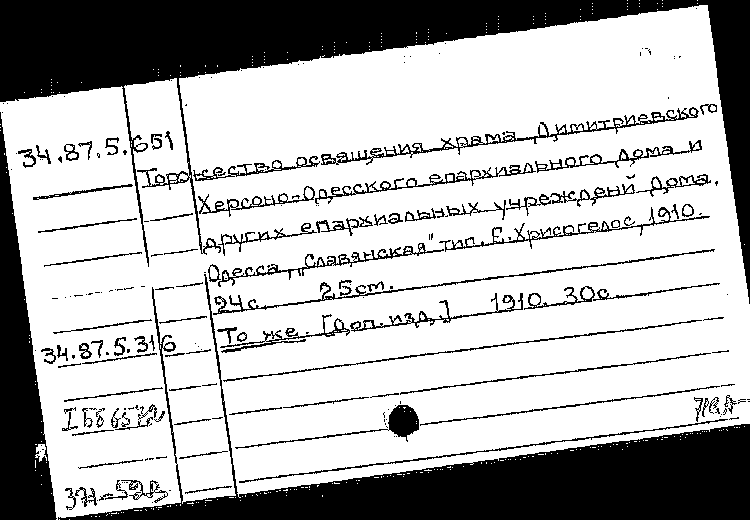 34.87.5.651
Торжество освящения храма Димитриевского
Херсоно-Одесского епархиального дома и
других епархиальных учреждений дома.
Одесса, „Славянская" тип. Е. Хрисогелос, 1910.
24с. 25cm.
34.87.5.316 То же. [Доп. изд.] 1910. 30с.